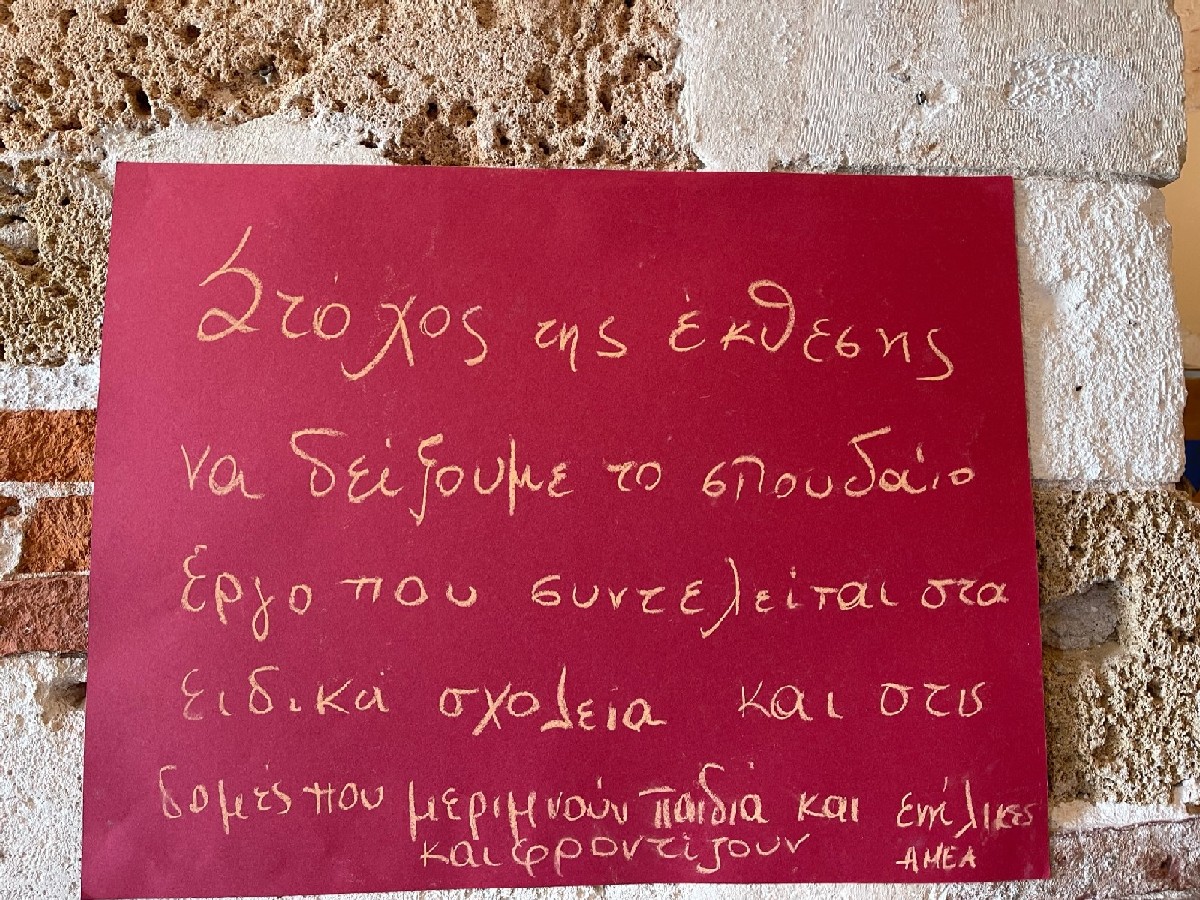 Στόχος της έκθεσης
να δείξουμε το σπουδαίο
έργο που συντελείται στα
ειδικά σχολεία και στις
δομές που μεριμνούν παιδιά και ενήλικες
και φροντίζουν ΑΜΕΑ